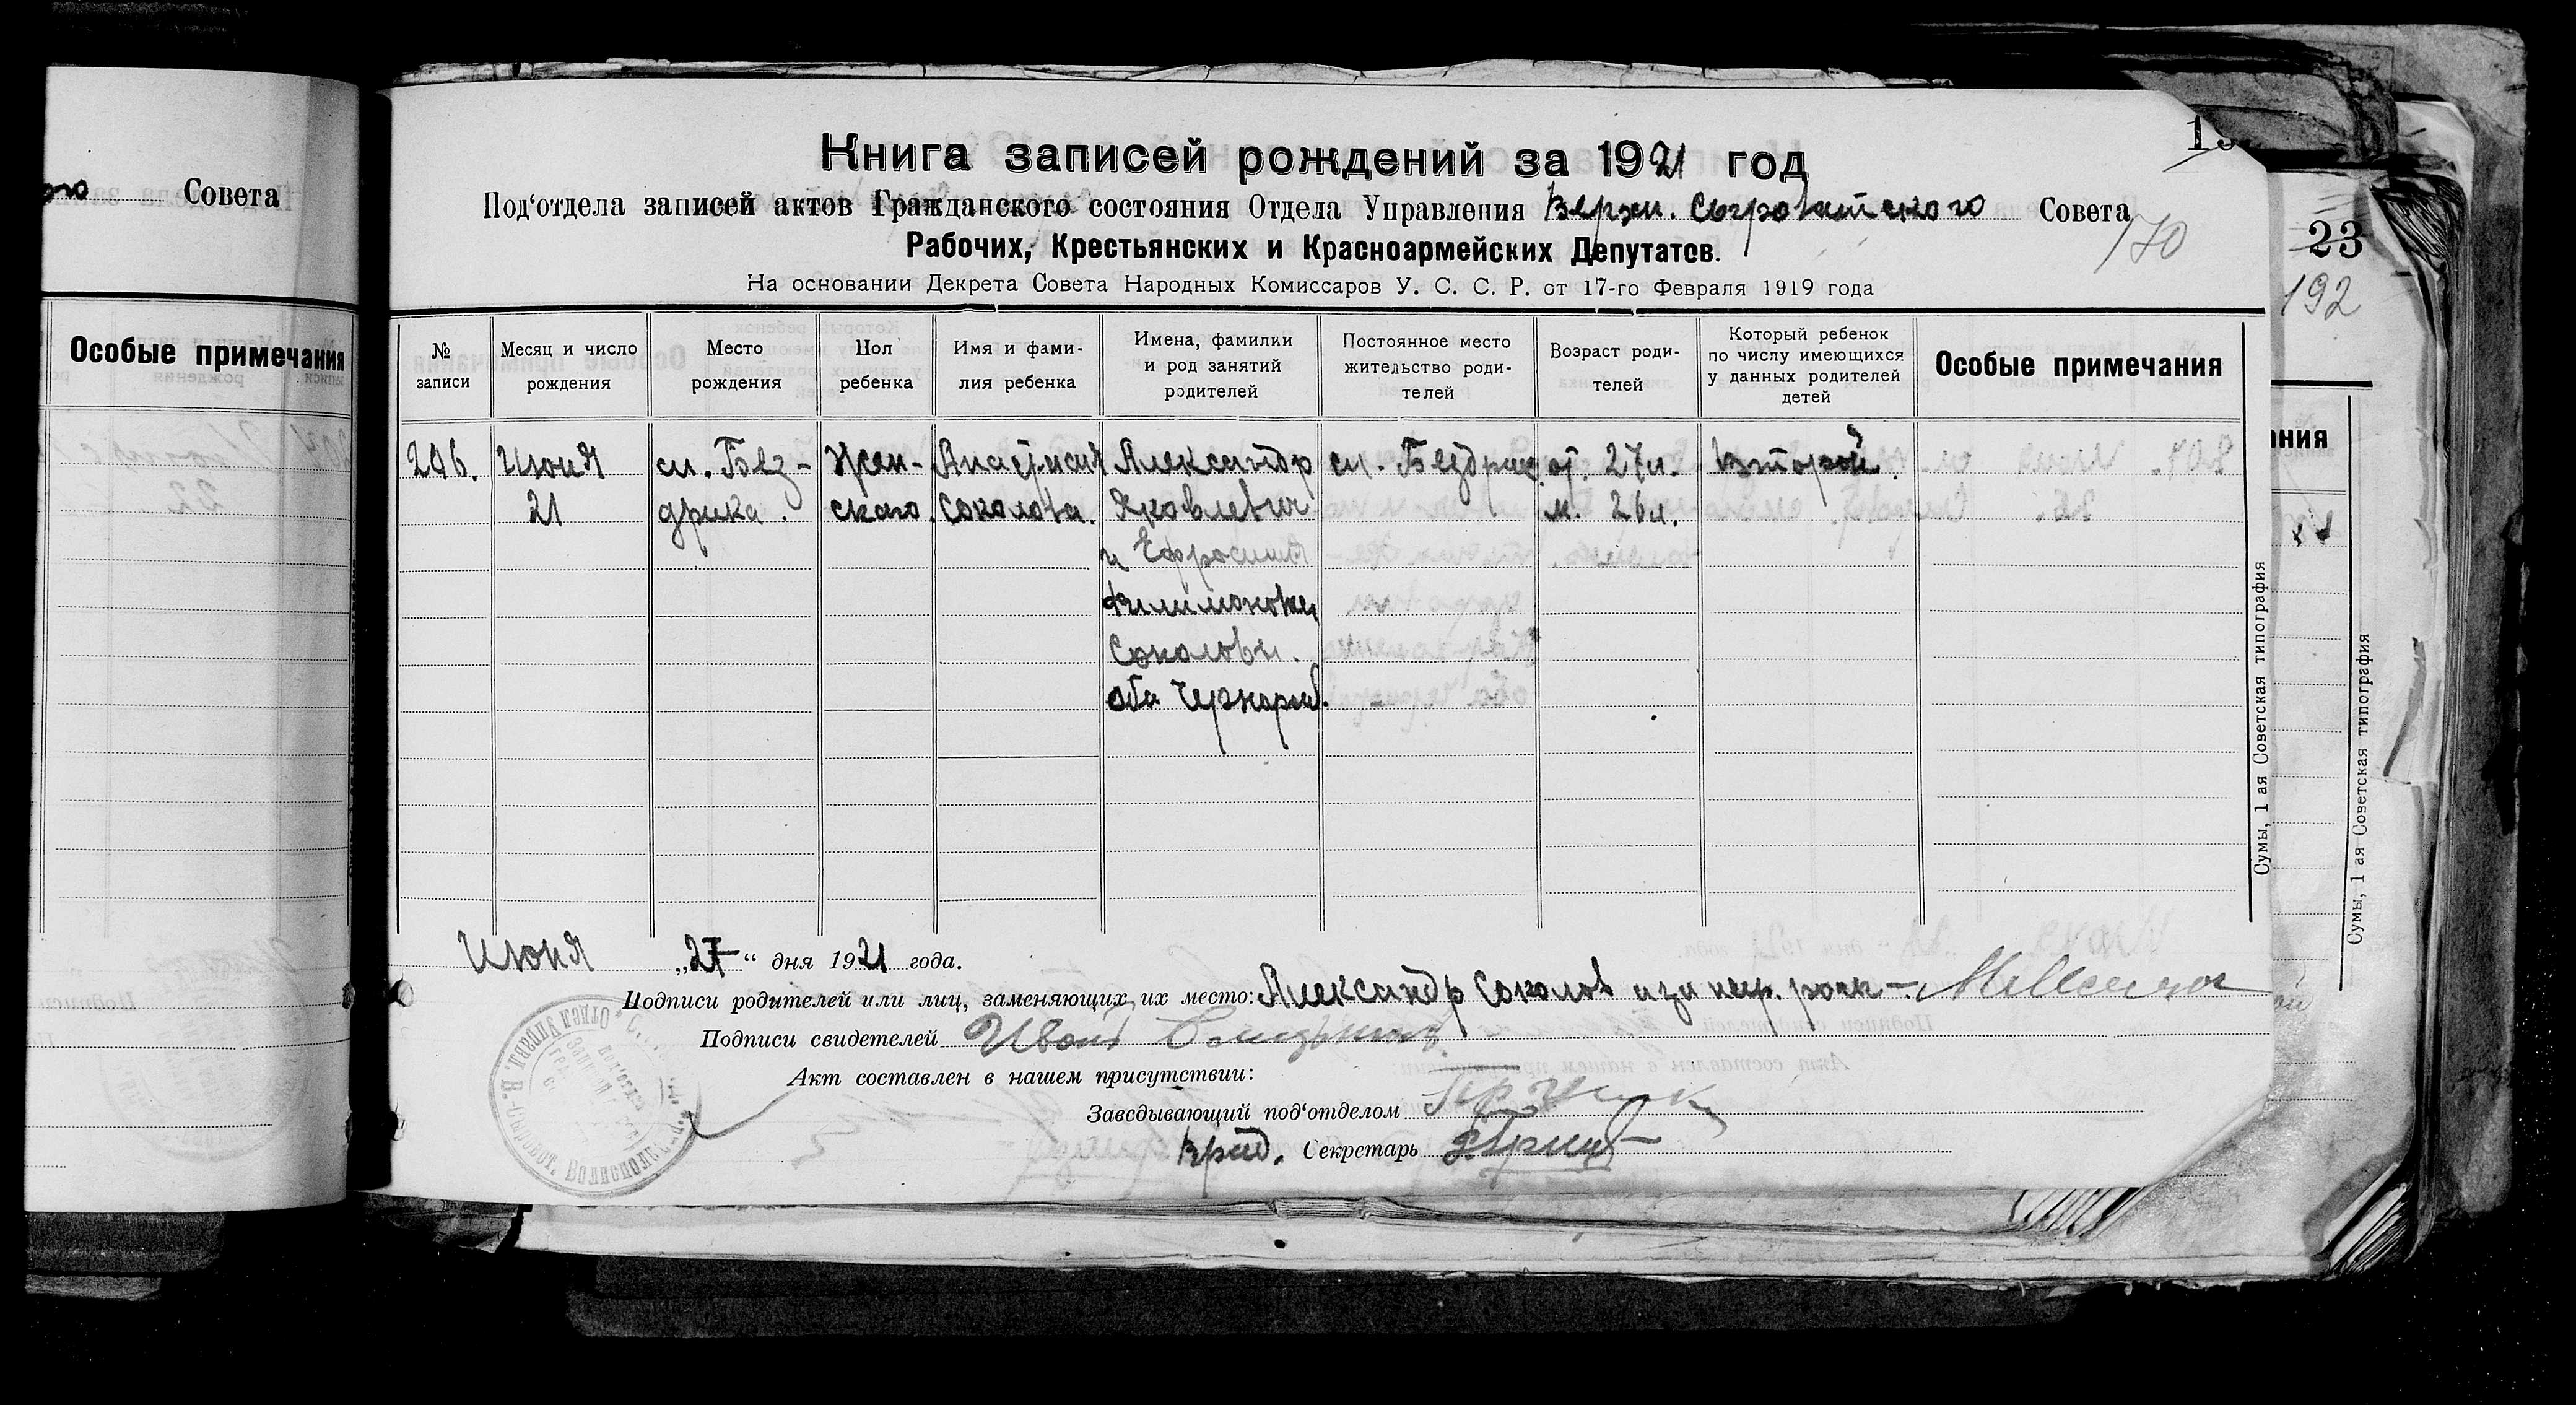 Совета
Особые примечания
Книга записей рождений за 1921 год
Под'отдела записей актов Гражданского состояния Отдела Управления Верхн. Сыроватского Совета
Рабочих, Крестьянских и Красноармейских Депутатов.
На основании Декрета Совета Народных Комиссаров У. С. С. Р. от 17-го Февраля 1919 года
170
23
192
№ записи
Месяц и число рождения
Место рождения
Пол ребенка
Имя и фами- лия ребенка
Имена, фамилии и род занятий родителей
Постоянное место жительство роди- телей
Возраст роди- телей
Который ребенок по числу имеющихся у данных родителей детей
Особые примечания
ания
206.
Июня
21
сл. Без-
дрика.
Жен-
скаго.
Соколова.
Александр
Яковлевич
и Ефросиния
Филимоновна
Соколовы.
оба
сл. Бездрик.
от. 27 л.
м. 26 л.
Второй.
Сумы, 1 ая Советская типография
Сумы, 1 ая Советская типография
Июня „27“ дня 1921 года.
Подписи родителей или лиц, заменяющих их место: Александр Соколов
Подписи свидетелей Иван
Акт составлен в нашем присутствии:
Заведывающий под'отделом
Врид. Секретарь